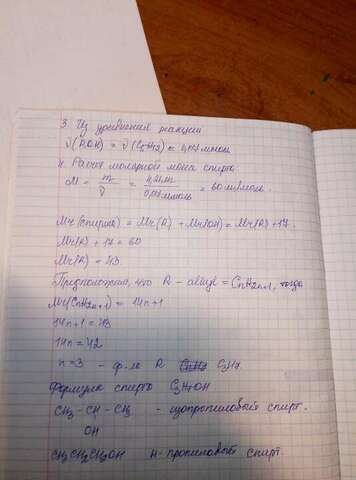 3. Из уравнения реакции
ν(ROH) = ν(
4. Расчет молярной массы спирта
M = m/ν = = 60 г/моль.
Mr(спирта) = Mr(R) + Mr(OH) = Mr(R) + 17.
Mr(R) + 17 = 60
Mr(R) = 43
Предположим, что R - алкил = CnH2n+1, тогда
Mr(CnH2n+1) = 14n+1
14n+1 = 43
14n = 42
n = 3 - ф-ла R C3H7.
Формула спирта C3H7OH
CH3 - CH - CH3 - изопропиловый спирт.
OH
CH3CH2CH2OH н-пропиловый спирт.